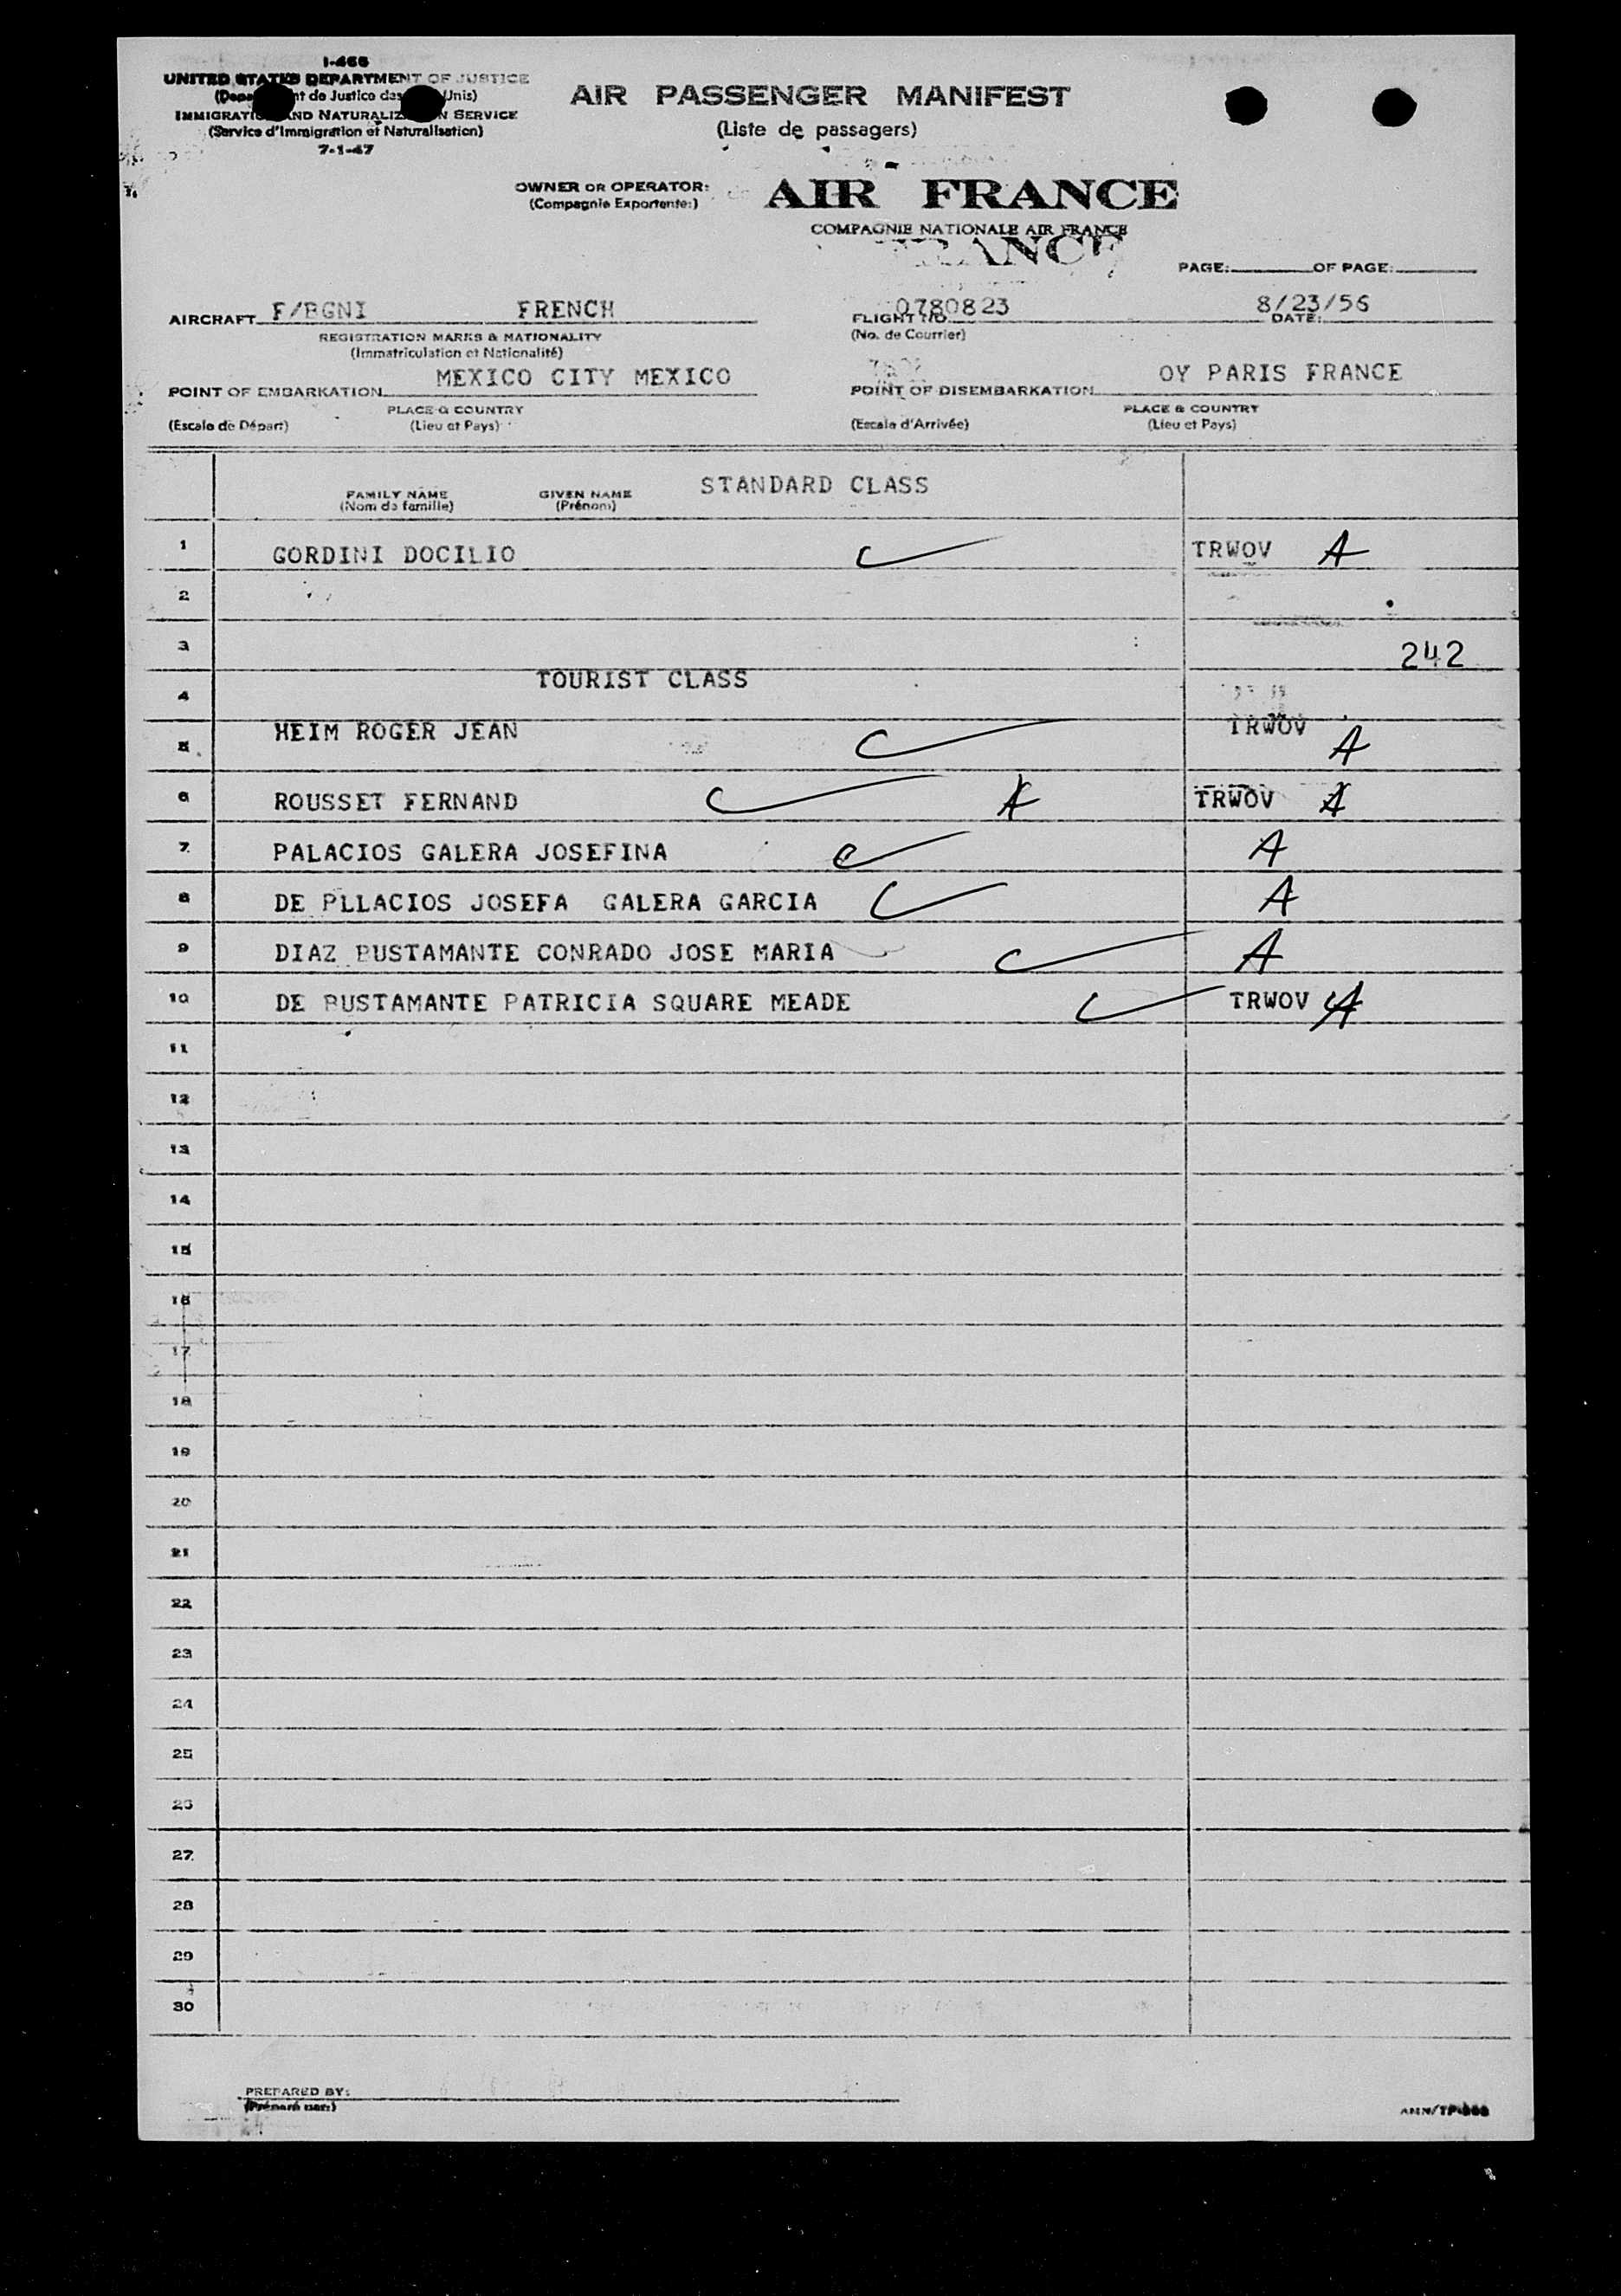 I-466
UNITED STATES DEPARTMENT OF JUSTICE
nt de Justice des Unis)
IMMIGRATION AND NATURALIZATION SERVICE
(Service d'Immigration et Naturalisation)
7-1-47
AIR PASSENGER MANIFEST
(Liste de passagers)
OWNER OR OPERATOR:
(Compagnie Exportente:)
AIR FRANCE
COMPAGNIE NATIONALE AIR FRANCE
RANCE
PAGE: OF PAGE:
AIRCRAFT F/BGNI FRENCH
REGISTRATION MARKS & NATIONALITY
(Immatriculation et Nationalité)
FLIGHT NO. 0780823
(No. de Courrier)
8/23/56
DATE:
POINT OF EMBARKATION MEXICO CITY MEXICO
PLACE & COUNTRY
(Escale de Départ) (Lieu et Pays)
POINT OF DISEMBARKATION OY PARIS FRANCE
PLACE & COUNTRY
(Escale d'Arrivée) (Lieu et Pays)
FAMILY NAME GIVEN NAME STANDARD CLASS
(Nom de famille) (Prénom)
1 GORDINI DOCILIO TRWOV A
2
3 242
4 TOURIST CLASS
5 HEIM ROGER JEAN TRWOV A
6 ROUSSET FERNAND A TRWOV A
7 PALACIOS GALERA JOSEFINA A
8 DE PLLACIOS JOSEFA GALERA GARCIA A
9 DIAZ BUSTAMANTE CONRADO JOSE MARIA A
10 DE BUSTAMANTE PATRICIA SQUARE MEADE TRWOV A
11
12
13
14
15
16
17
18
19
20
21
22
23
24
25
26
27
28
29
30
PREPARED BY:
(Préparé par:)